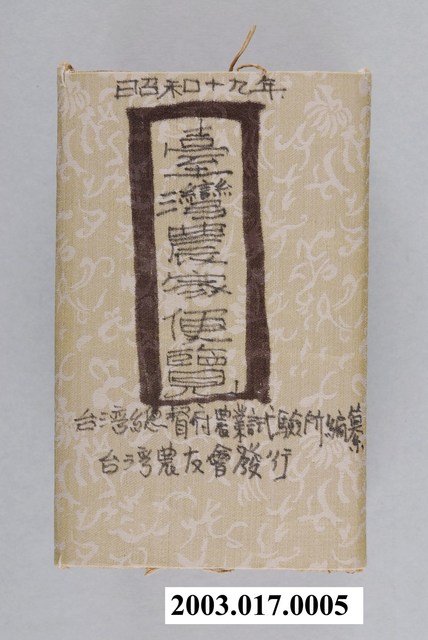 昭和十九年
臺灣農家便覽
台湾總督府農業試驗所編纂
台湾農友會發行
2003.017.0005